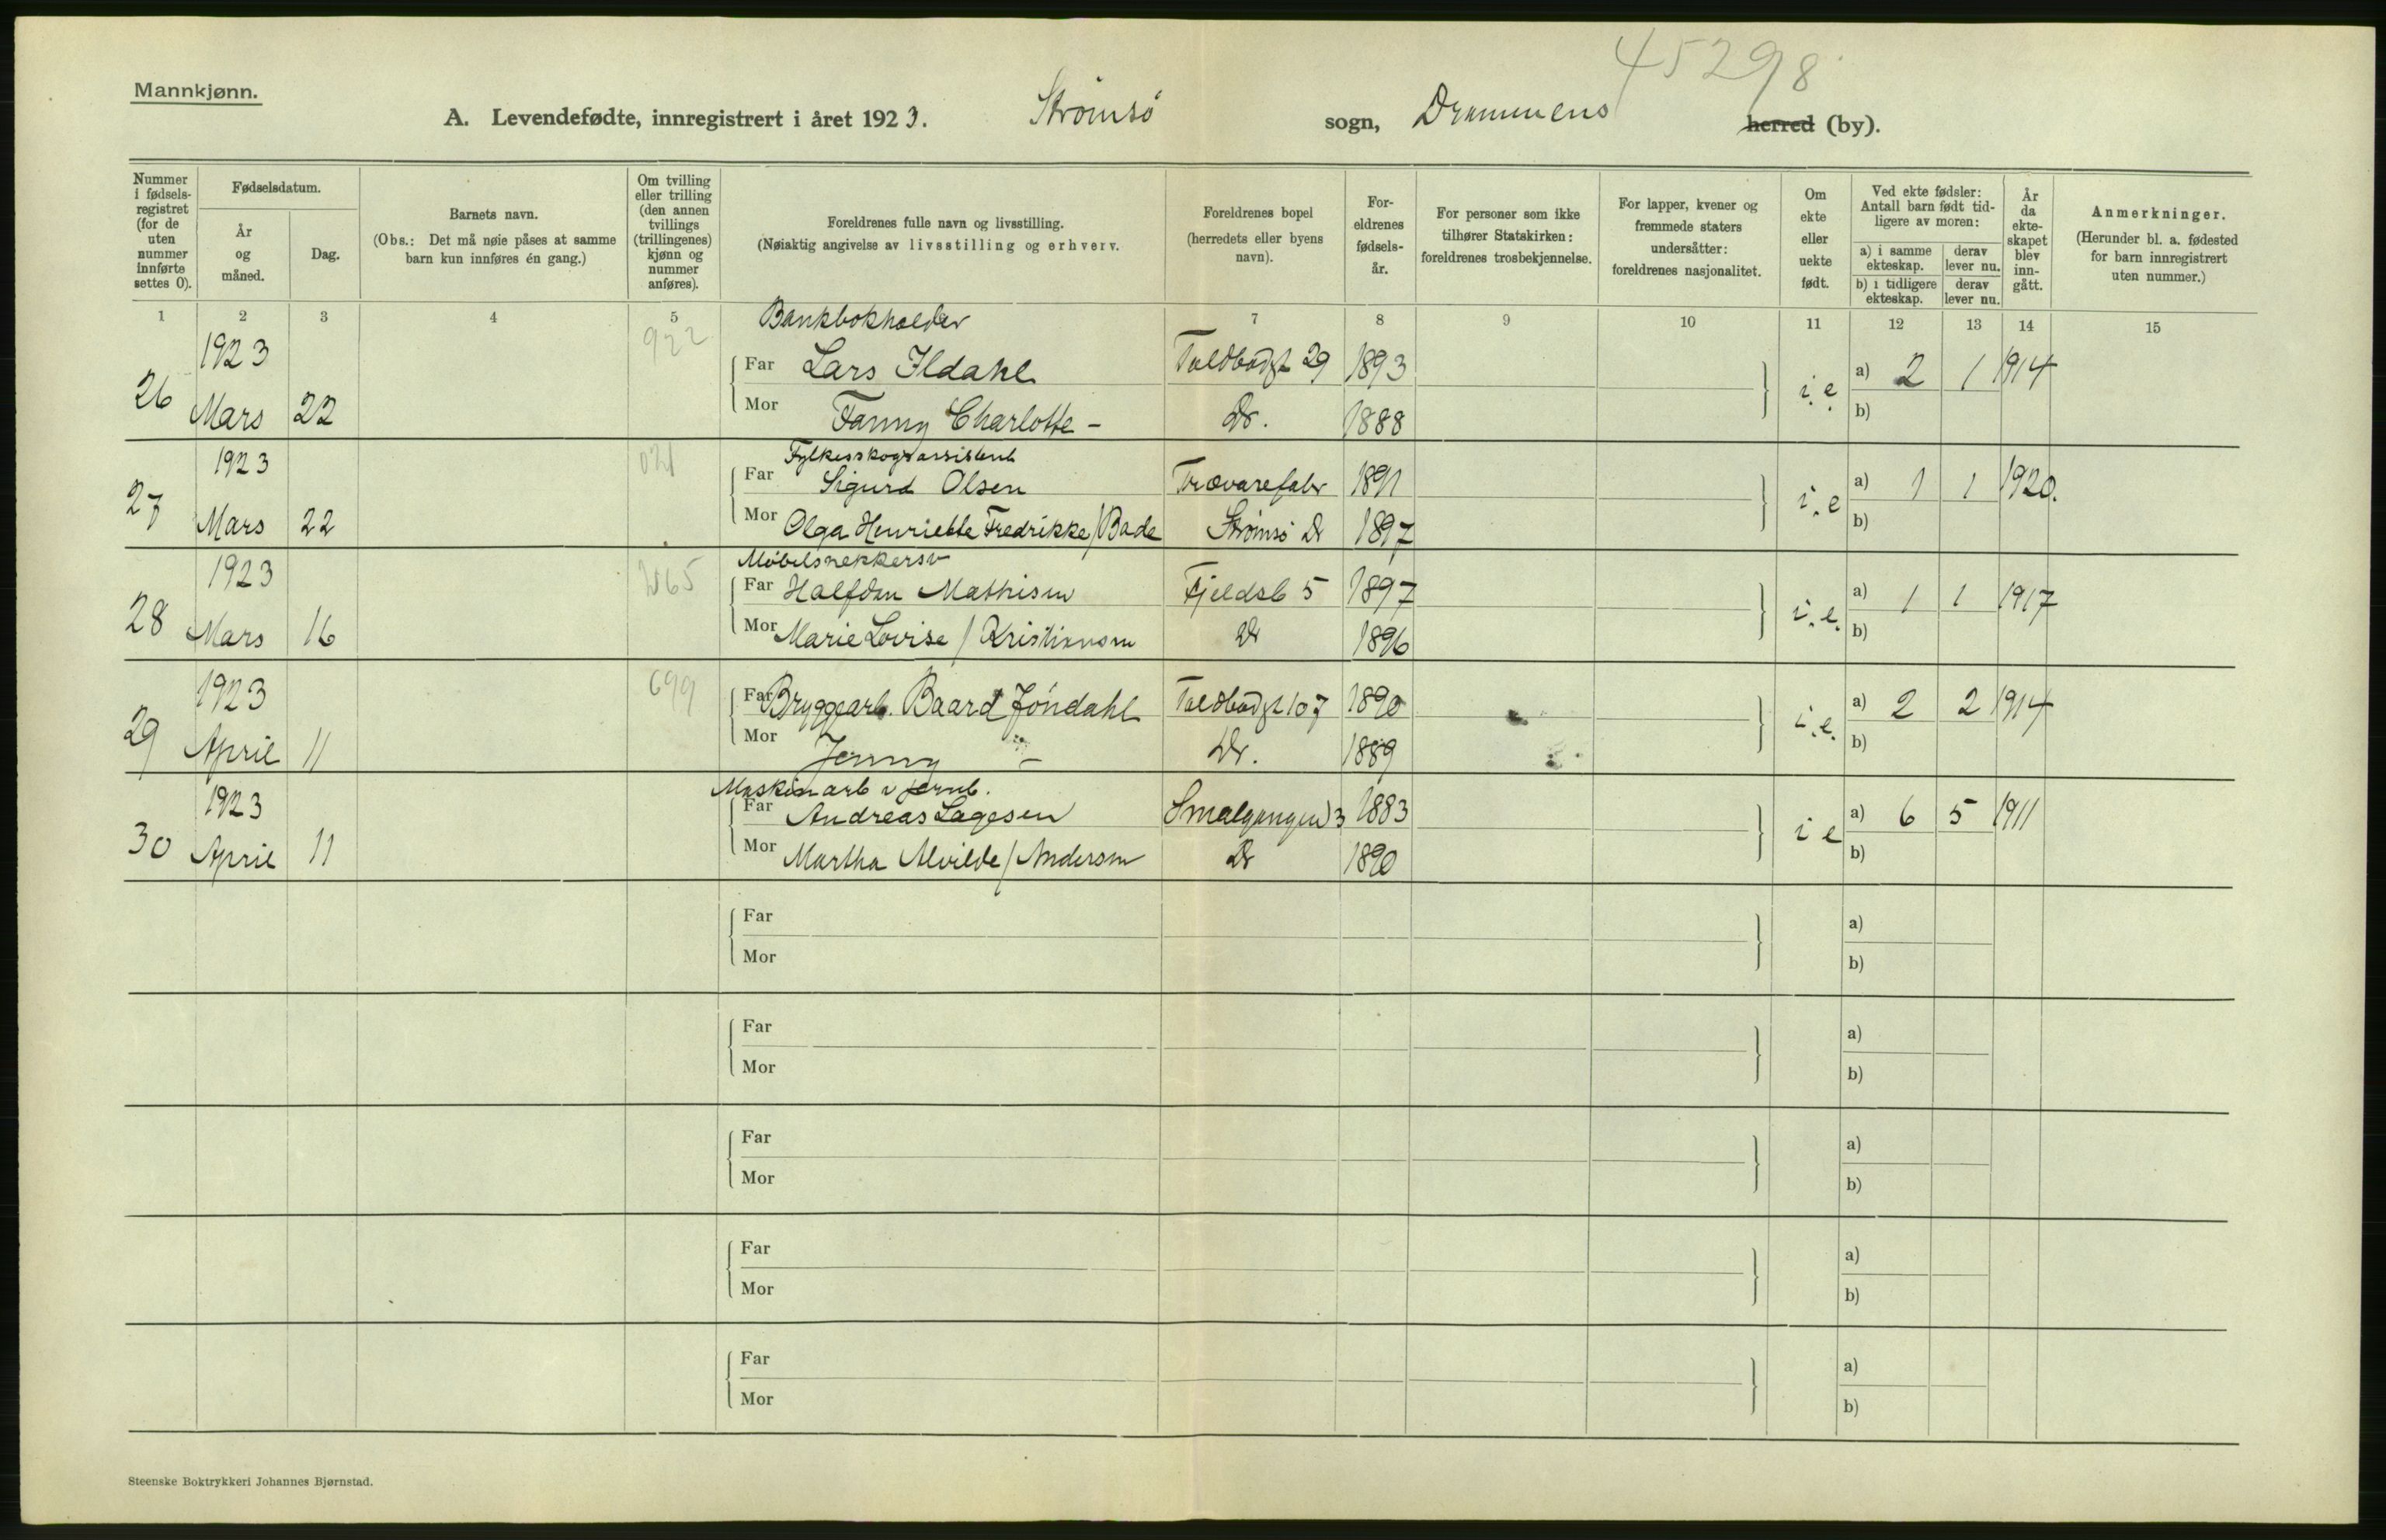 45298
Mannkjønn.
A. Levendefødte, innregistrert i året 1923. Strømsö sogn, Drammens herred (by).
Nummer i fødsels-registret (for de uten nummer innførte settes 0).
Fødselsdatum.
År og måned.
Dag.
Barnets navn.
(Obs.: Det må nøie påses at samme barn kun innføres én gang.)
Om tvilling eller trilling (den annen tvillings (trillingenes) kjønn og nummer anføres).
Foreldrenes fulle navn og livsstilling.
(Nøiaktig angivelse av livsstilling og erhverv.
Foreldrenes bopel (herredets eller byens navn).
For-eldrenes fødsels-år.
For personer som ikke tilhører Statskirken: foreldrenes trosbekjennelse.
For lapper, kvener og fremmede staters undersåtter: foreldrenes nasjonalitet.
Om ekte eller uekte født.
Ved ekte fødsler: Antall barn født tid-ligere av moren:
a) i samme ekteskap.
derav lever nu.
b) i tidligere ekteskap.
derav lever nu.
År da ekte-skapet blev inn-gått.
Anmerkninger.
(Herunder bl. a. fødested for barn innregistrert uten nummer.)
1 2 3 4 5 7 8 9 10 11 12 13 14 15
Bankbokholder
26 1923 Mars 22 922
Far Lars Ildahl Toldbodgt 29 1893 i.e. a) 2 1 1914
Mor Fanny Charlotte - Dr. 1888 b)
Fylkesskogsassistent
27 1923 Mars 22 021
Far Sigurd Olsen Trævarefabr 1891 i.e a) 1 1 1920.
Mor Olga Henriette Fredrikke / Bade Strömsö Dr 1897 b)
Möbelsnekkersv
28 1923 Mars 16
Far Halfdan Mathisen Fjeldgt 5 1897 i.e. a) 1 1 1917
Mor Marie Lovise / Kristiansen Dr 1896 b)
29 1923 April 11 699
Far Bryggearb. Baard Jöndahl Toldbodgt 107 1890 i.e. a) 2 2 1914
Mor Jenny - Dr. 1889 b)
Maskinarb v jernb.
30 1923 April 11
Far Andreas Lagesen Smalgangen 3 1883 i e a) 6 5 1911
Mor Martha Alvilde / Andersen Dr 1890 b)
Far a)
Mor b)
Far a)
Mor b)
Far a)
Mor b)
Far a)
Mor b)
Far a)
Mor b)
Steenske Boktrykkeri Johannes Bjørnstad.